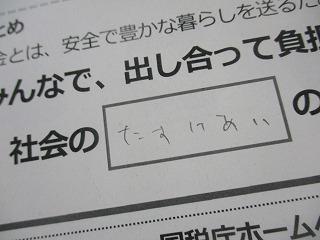 とめ
会とは、安全で豊かな暮らしを送るた
みんなで、出し合って負担
社会の たすけあい の
国税庁ホーム